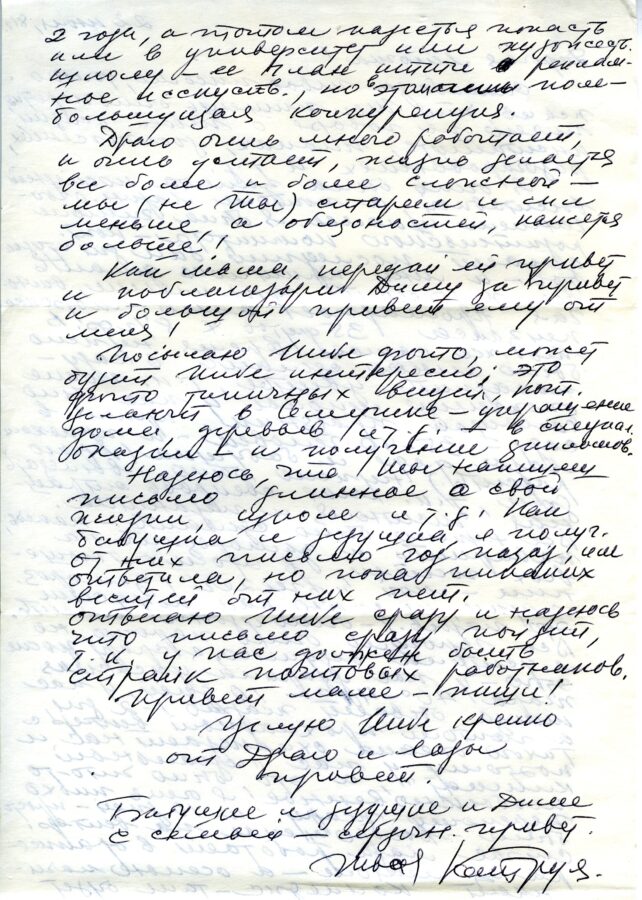 2 года, а потом надеется попасть
или в университет или художеств.
школу – ее план итти в реклам-
ное исскуств., но в этом поле –
большущая конкуренция.
Драго очень много работает,
и очень устает, жизнь делается
все более и более сложной –
мы (не ты) стареем и сил
меньше, а обязаностей, кажется
больше!
Как мама, передай ей привет
и поблагодари Диму за привет
и большой привет ему от
меня!
Посылаю тебе фото, может
будет тебе интересно; это
фото типичных вещей, кот.
делают в Америке – украшение
дома, деревьев и т.д. – в специал.
– и получение дипломов.
Надеюсь, что ты напишеш
письмо длинное о свой
жизни, школе и т.д. Как
бабушка и дедушка, я получ.
от них письмо год назад, им
ответила, но пока никаких
вестей от них нет.
Отвечаю тебе сразу и надеюсь
что письмо сразу пойдет,
т.к. у нас должен быть
страйк почтовых работников.
Привет маме – пиши!
Целую тебя крепко
от Драго и Лады
привет.
Бабушке и дедушке и Диме
с семьей – сердечн. привет.
твоя Катруся.